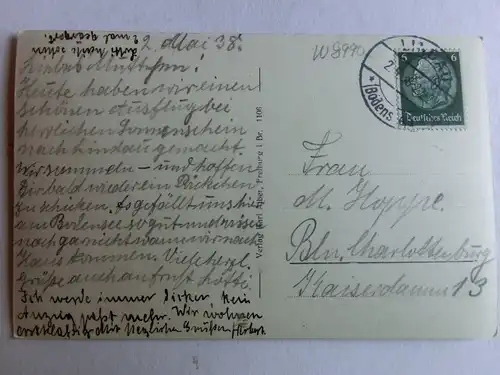 Lotti heute schon
2 mal geangelt.
2. Mai 38.
Liebes Muttchen!
Heute haben wir einen
schönen Ausflug bei
herrlichem Sonnenschein
nach Lindau gemacht.
Wir sammeln – und hoffen
Dir bald wieder ein Päckchen
zu schicken. Es gefällt uns hier
am Bodensee so gut und wissen
noch gar nicht wann wir nach
Haus kommen. Viele herzl.
Grüße auch an
Ich werde immer dicker, kein
Anzug paßt mehr. Wir wohnen
erstklassig Mit herzlichen Grüßen
Verlag Karl Alber, Freiburg i. Br. 1106
W 8990
Bodens
6 6
Deutsches Reich
Frau
M. Hoppe.
Bln. Charlottenburg
Kaiserdamm 13